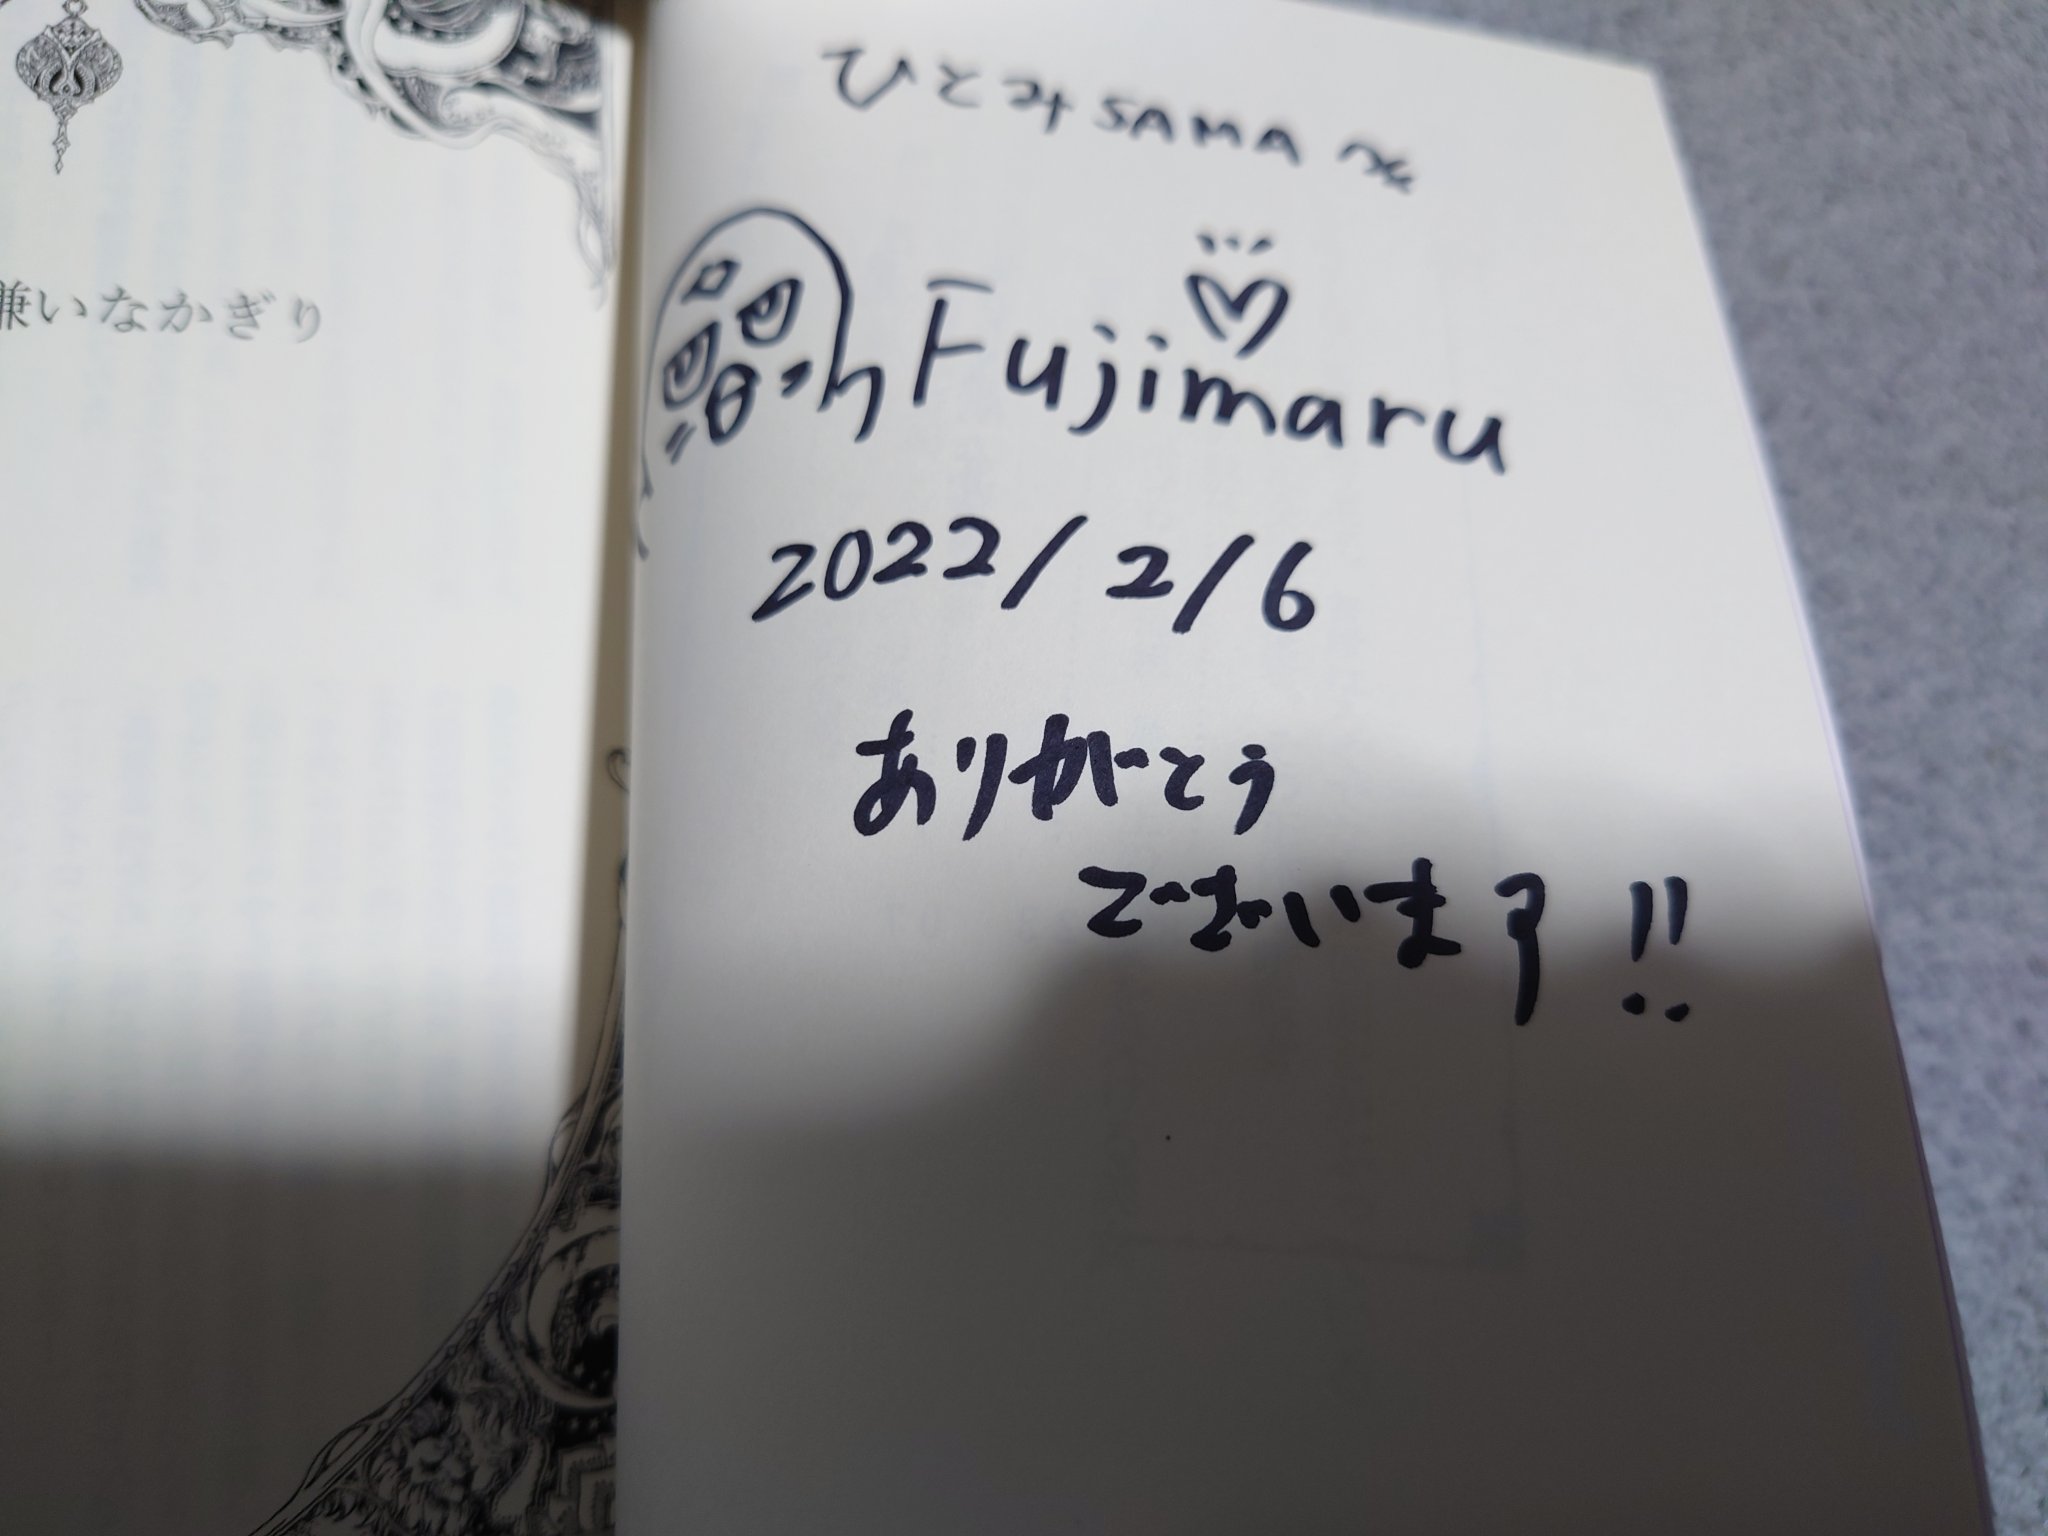 嫌いなかぎり
ひとみSAMA へ
Fujimaru
2022/2/6
ありがとう
ございます!!